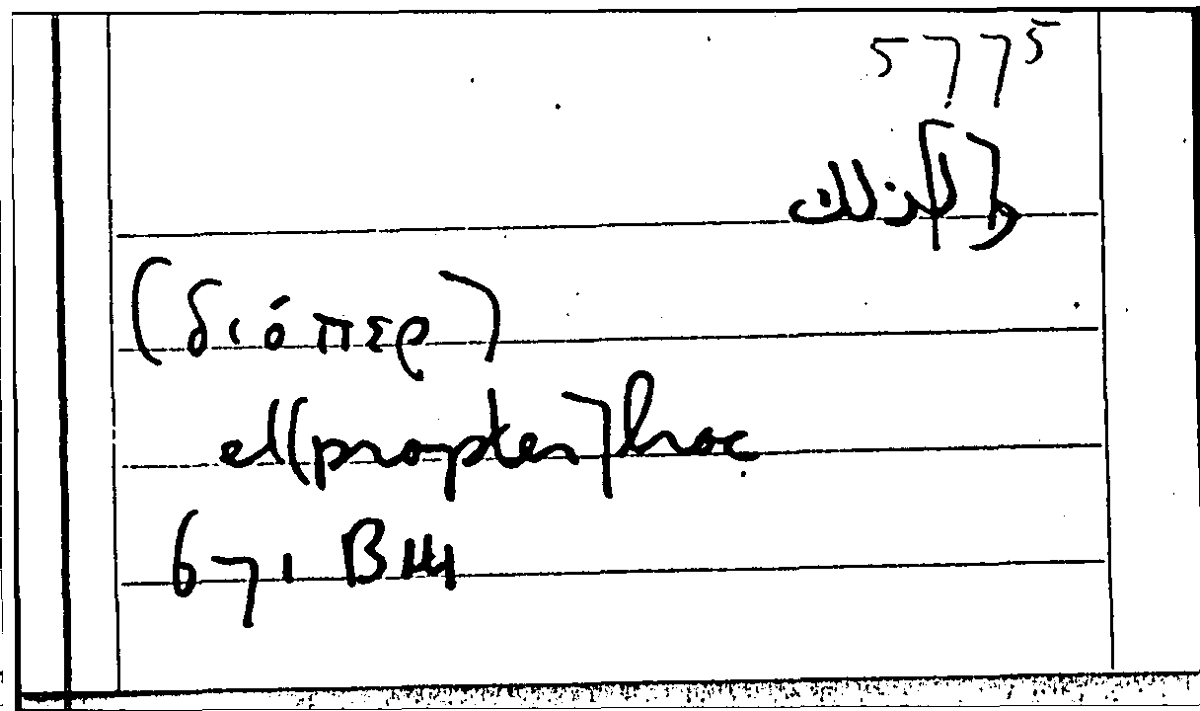 5775
و[ل]ذلك
(διόπερ)
et (propter] hoc
671 B